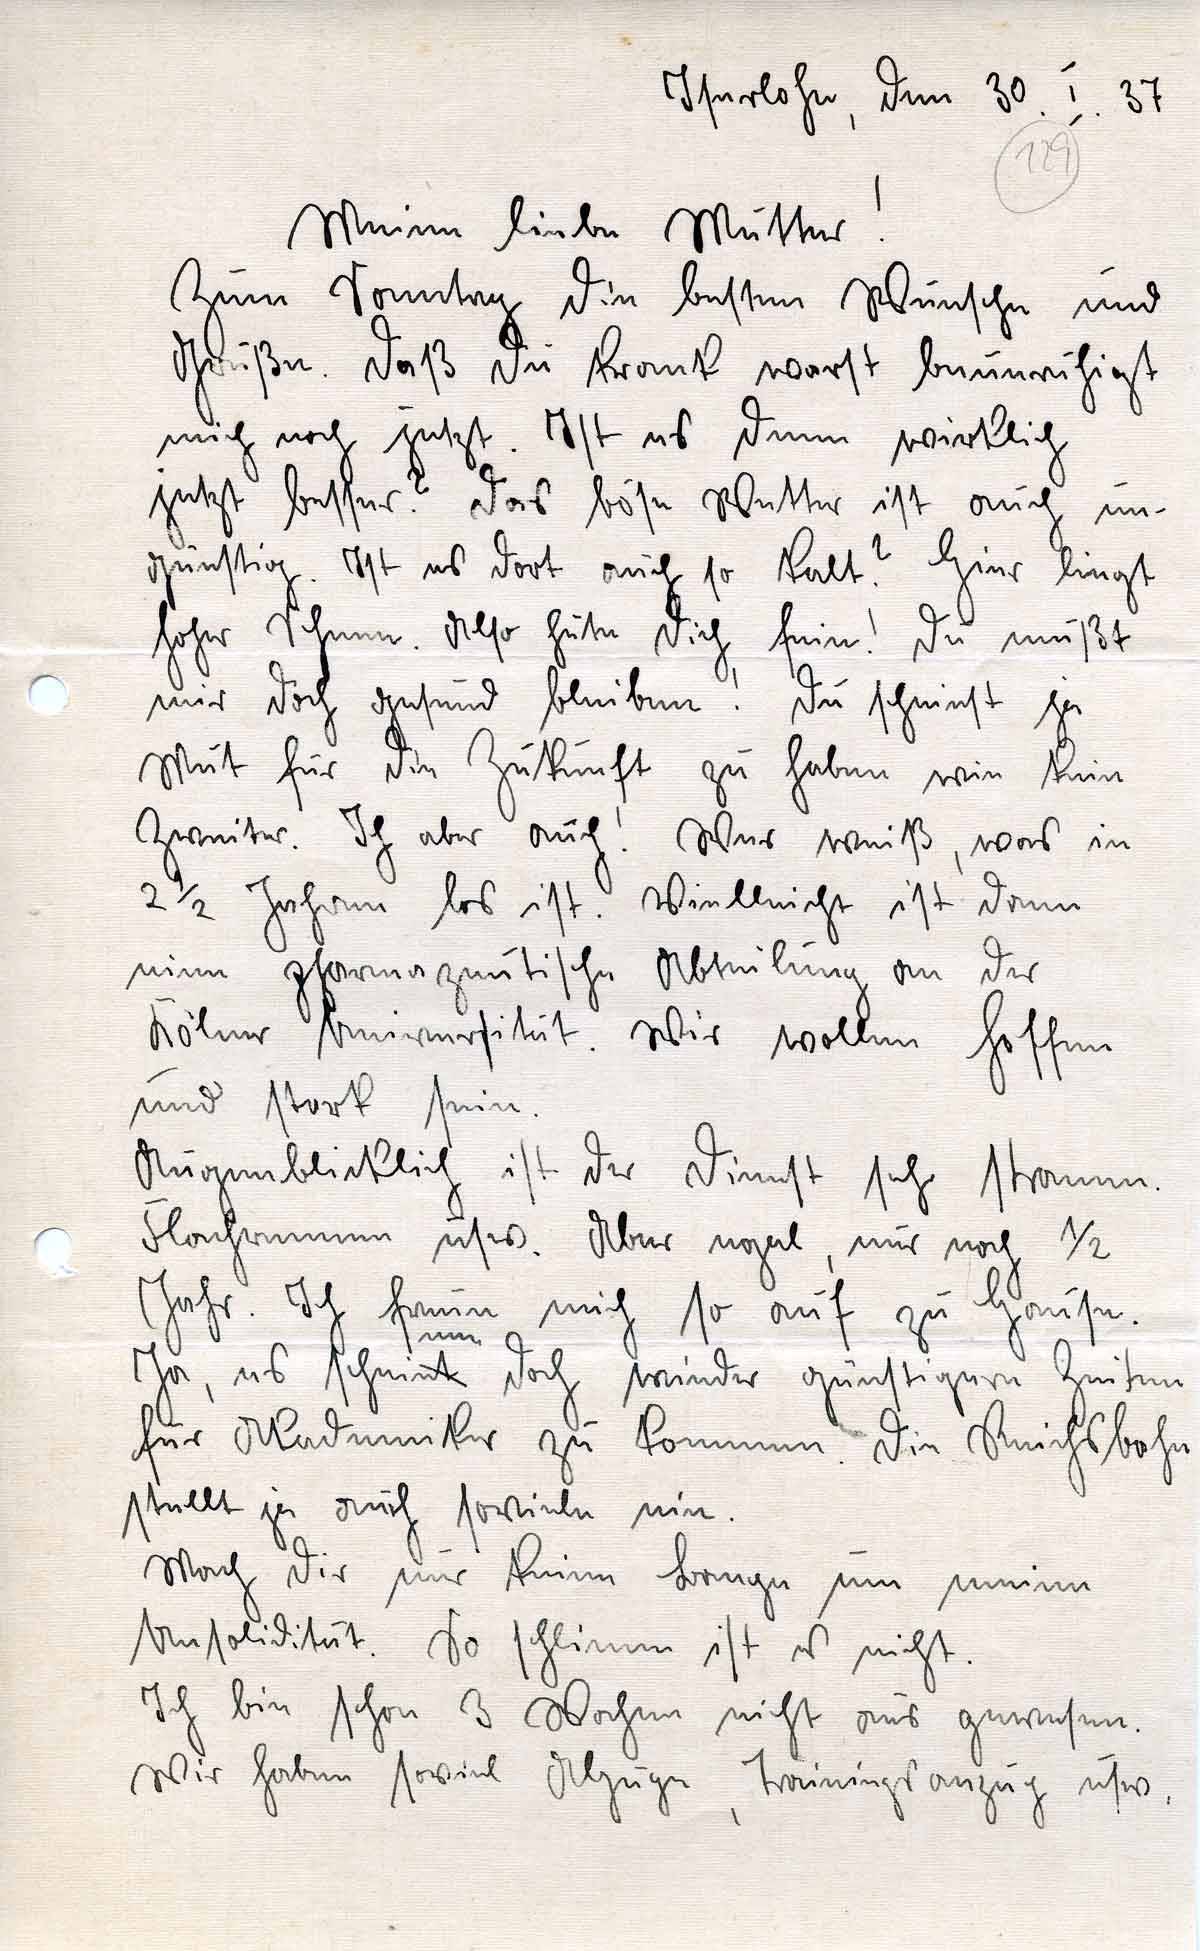 Iserlohn, den 30. I. 37
129
Meine liebe Mutter!
Zum Sonntag die besten Wünsche und
Grüße. Daß Du krank warst beunruhigt
mich noch jetzt. Ist es denn wirklich
jetzt besser? Das böse Wetter ist auch un-
günstig. Ist es dort auch so kalt? Hier liegt
hoher Schnee. Also hüte Dich fein! Du mußt
mir doch gesund bleiben! Du scheinst ja
Mut für die Zukunft zu haben wie kein
Zweiter. Ich aber auch! Wer weiß, was in
2 1/2 Jahren los ist. Vielleicht ist dann
eine pharmazeutische Abteilung an der
Kölner Universität. Wir wollen hoffen
und stark sein.
Augenblicklich ist der Dienst sehr stramm.
Flachrennen usw. Aber egal, nur noch 1/2
Jahr. Ich freue mich so auf zu Hause.
nun
Ja, es scheint doch wieder günstigere Zeiten
für Akademiker zu kommen. Die Reichsbahn
stellt ja auch soviele ein.
Mach Dir nur keine Bange um meine
Unsolidität. So schlimm ist es nicht.
Ich bin schon 3 Wochen nicht aus gewesen.
Wir haben soviel Abzüge, Trainingsanzug usw.